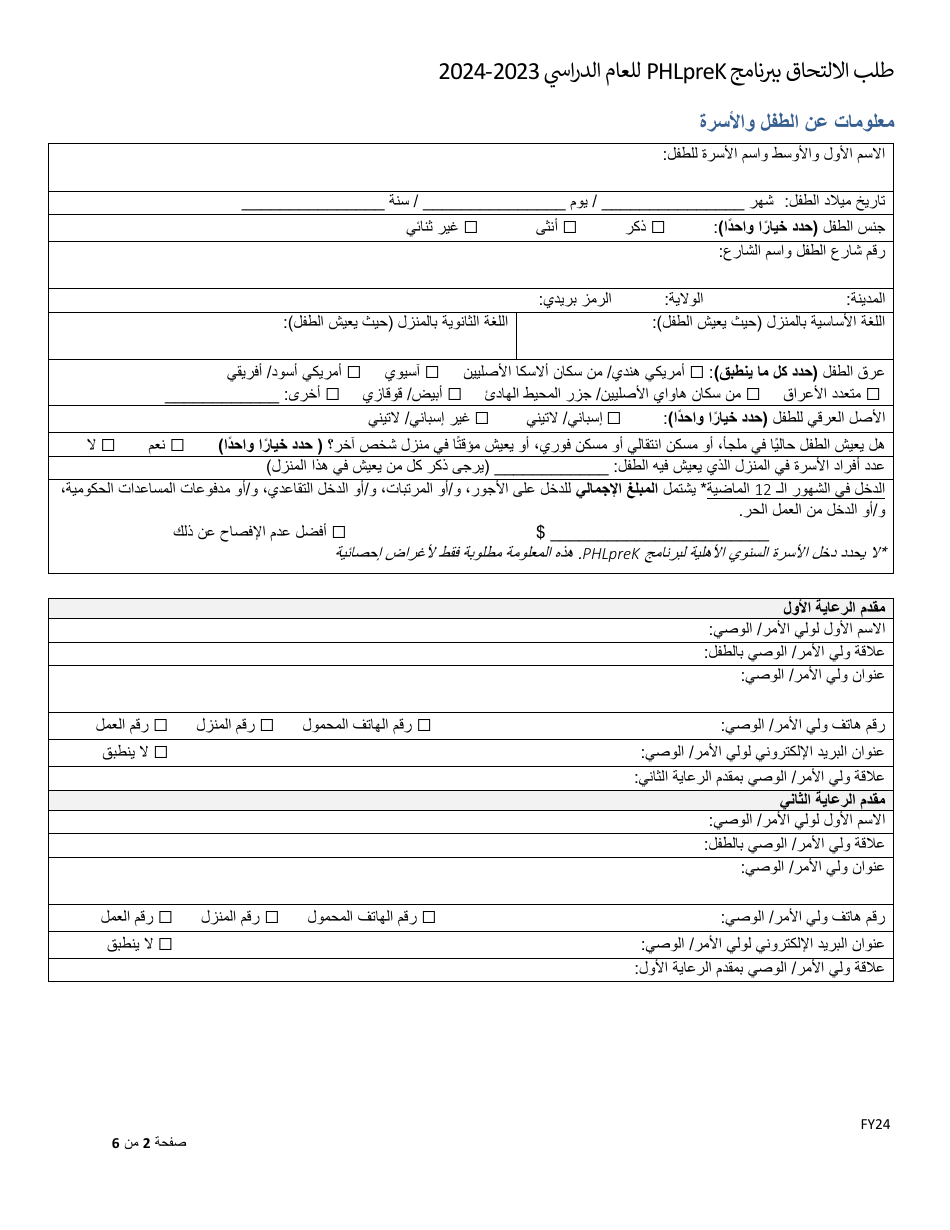 طلب الالتحاق ببرنامج PHLpreK للعام الدراسي 2023-2024
معلومات عن الطفل والأسرة
الاسم الأول والأوسط واسم الأسرة للطفل:
تاريخ ميلاد الطفل: شهر _______________ / يوم _______________ / سنة _______________
جنس الطفل (حدد خيارًا واحدًا): ☐ ذكر ☐ أنثى ☐ غير ثنائي
رقم شارع الطفل واسم الشارع:
المدينة: الولاية: الرمز بريدي:
اللغة الأساسية بالمنزل (حيث يعيش الطفل): اللغة الثانوية بالمنزل (حيث يعيش الطفل):
عرق الطفل (حدد كل ما ينطبق): ☐ أمريكي هندي/ من سكان ألاسكا الأصليين ☐ آسيوي ☐ أمريكي أسود/ أفريقي
☐ متعدد الأعراق ☐ من سكان هاواي الأصليين/ جزر المحيط الهادئ ☐ أبيض/ قوقازي ☐ أخرى: ____________
الأصل العرقي للطفل (حدد خيارًا واحدًا): ☐ إسباني/ لاتيني ☐ غير إسباني/ لاتيني
هل يعيش الطفل حاليًا في ملجأ، أو مسكن انتقالي أو مسكن فوري، أو يعيش مؤقتًا في منزل شخص آخر؟ ( حدد خيارًا واحدًا) ☐ نعم ☐ لا
عدد أفراد الأسرة في المنزل الذي يعيش فيه الطفل: ____________ (يرجى ذكر كل من يعيش في هذا المنزل)
الدخل في الشهور الـ 12 الماضية* يشتمل المبلغ الإجمالي للدخل على الأجور، و/أو المرتبات، و/أو الدخل التقاعدي، و/أو مدفوعات المساعدات الحكومية،
و/أو الدخل من العمل الحر.
_______________________ $ ☐ أفضل عدم الإفصاح عن ذلك
*لا يحدد دخل الأسرة السنوي الأهلية لبرنامج PHLpreK. هذه المعلومة مطلوبة فقط لأغراض إحصائية
مقدم الرعاية الأول
الاسم الأول لولي الأمر/ الوصي:
علاقة ولي الأمر/ الوصي بالطفل:
عنوان ولي الأمر/ الوصي:
رقم هاتف ولي الأمر/ الوصي: ☐ رقم الهاتف المحمول ☐ رقم المنزل ☐ رقم العمل
عنوان البريد الإلكتروني لولي الأمر/ الوصي: ☐ لا ينطبق
علاقة ولي الأمر/ الوصي بمقدم الرعاية الثاني:
مقدم الرعاية الثاني
الاسم الأول لولي الأمر/ الوصي:
علاقة ولي الأمر/ الوصي بالطفل:
عنوان ولي الأمر/ الوصي:
رقم هاتف ولي الأمر/ الوصي: ☐ رقم الهاتف المحمول ☐ رقم المنزل ☐ رقم العمل
عنوان البريد الإلكتروني لولي الأمر/ الوصي: ☐ لا ينطبق
علاقة ولي الأمر/ الوصي بمقدم الرعاية الأول:
FY24
صفحة 2 من 6